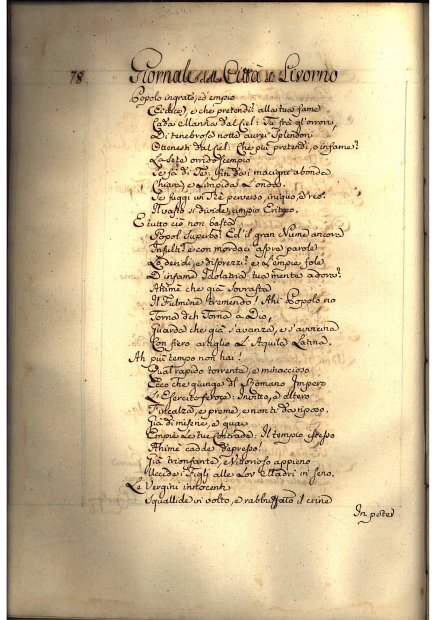 78 Giornale della Città di Livorno
Popolo ingrato, ed empio
(Ei dice), e che pretendi? alla tua fame
Cada Manna dal Ciel: Tu frà gl'orrori,
Di tenebrosa notte aurei splendori
Ottenesti dal Ciel: Che più pretendi, o infame?
La sete orrido scempio
Se fà di Te: Gia dai macigni abonda
Chiara, e limpida l'onda.
Se fuggi un Rè perverso, iniquo, e reo.
Il vasto si divide, ampio Eritreo.
E tutto ciò non basta
Popol superbo? Ed il gran Nume ancora
Insulti? e con mordaci aspre parole
La dendi, e disprezzi? e l'empie fole
D'infame Idolatria tua mente adora?
Ahimè che già sovrasta
Il Fulmine tremendo! Ahi Popolo no
Torna deh Torna a Dio,
Guarda che già s'avanza, e s'avvicina
Con fiero artiglio L'Aquila Latina.
Ah più tempo non hai!
Qual rapido torrente, e minaccioso
Ecco che giunge del Romano Impero
L'Esercito feroce: Invitto, e altero
T'incalza, e preme, e non ti dà riposo.
Già di miserie, e guai
Empie le tue Contrade: Il tempio istesso
Ahimè cadde depresso.
Già trionfante, e Vittorioso appieno
Uccide i Figlj alle Lor Madri in seno.
Le Vergini innocenti
Squallide in volto, e rabbuffato il crine
In poter